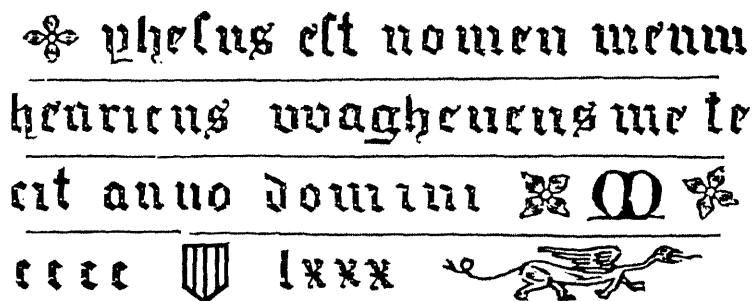 yhesus est nomen meum
henricus wagheuens me fe
cit anno domini M
cccc lxxx